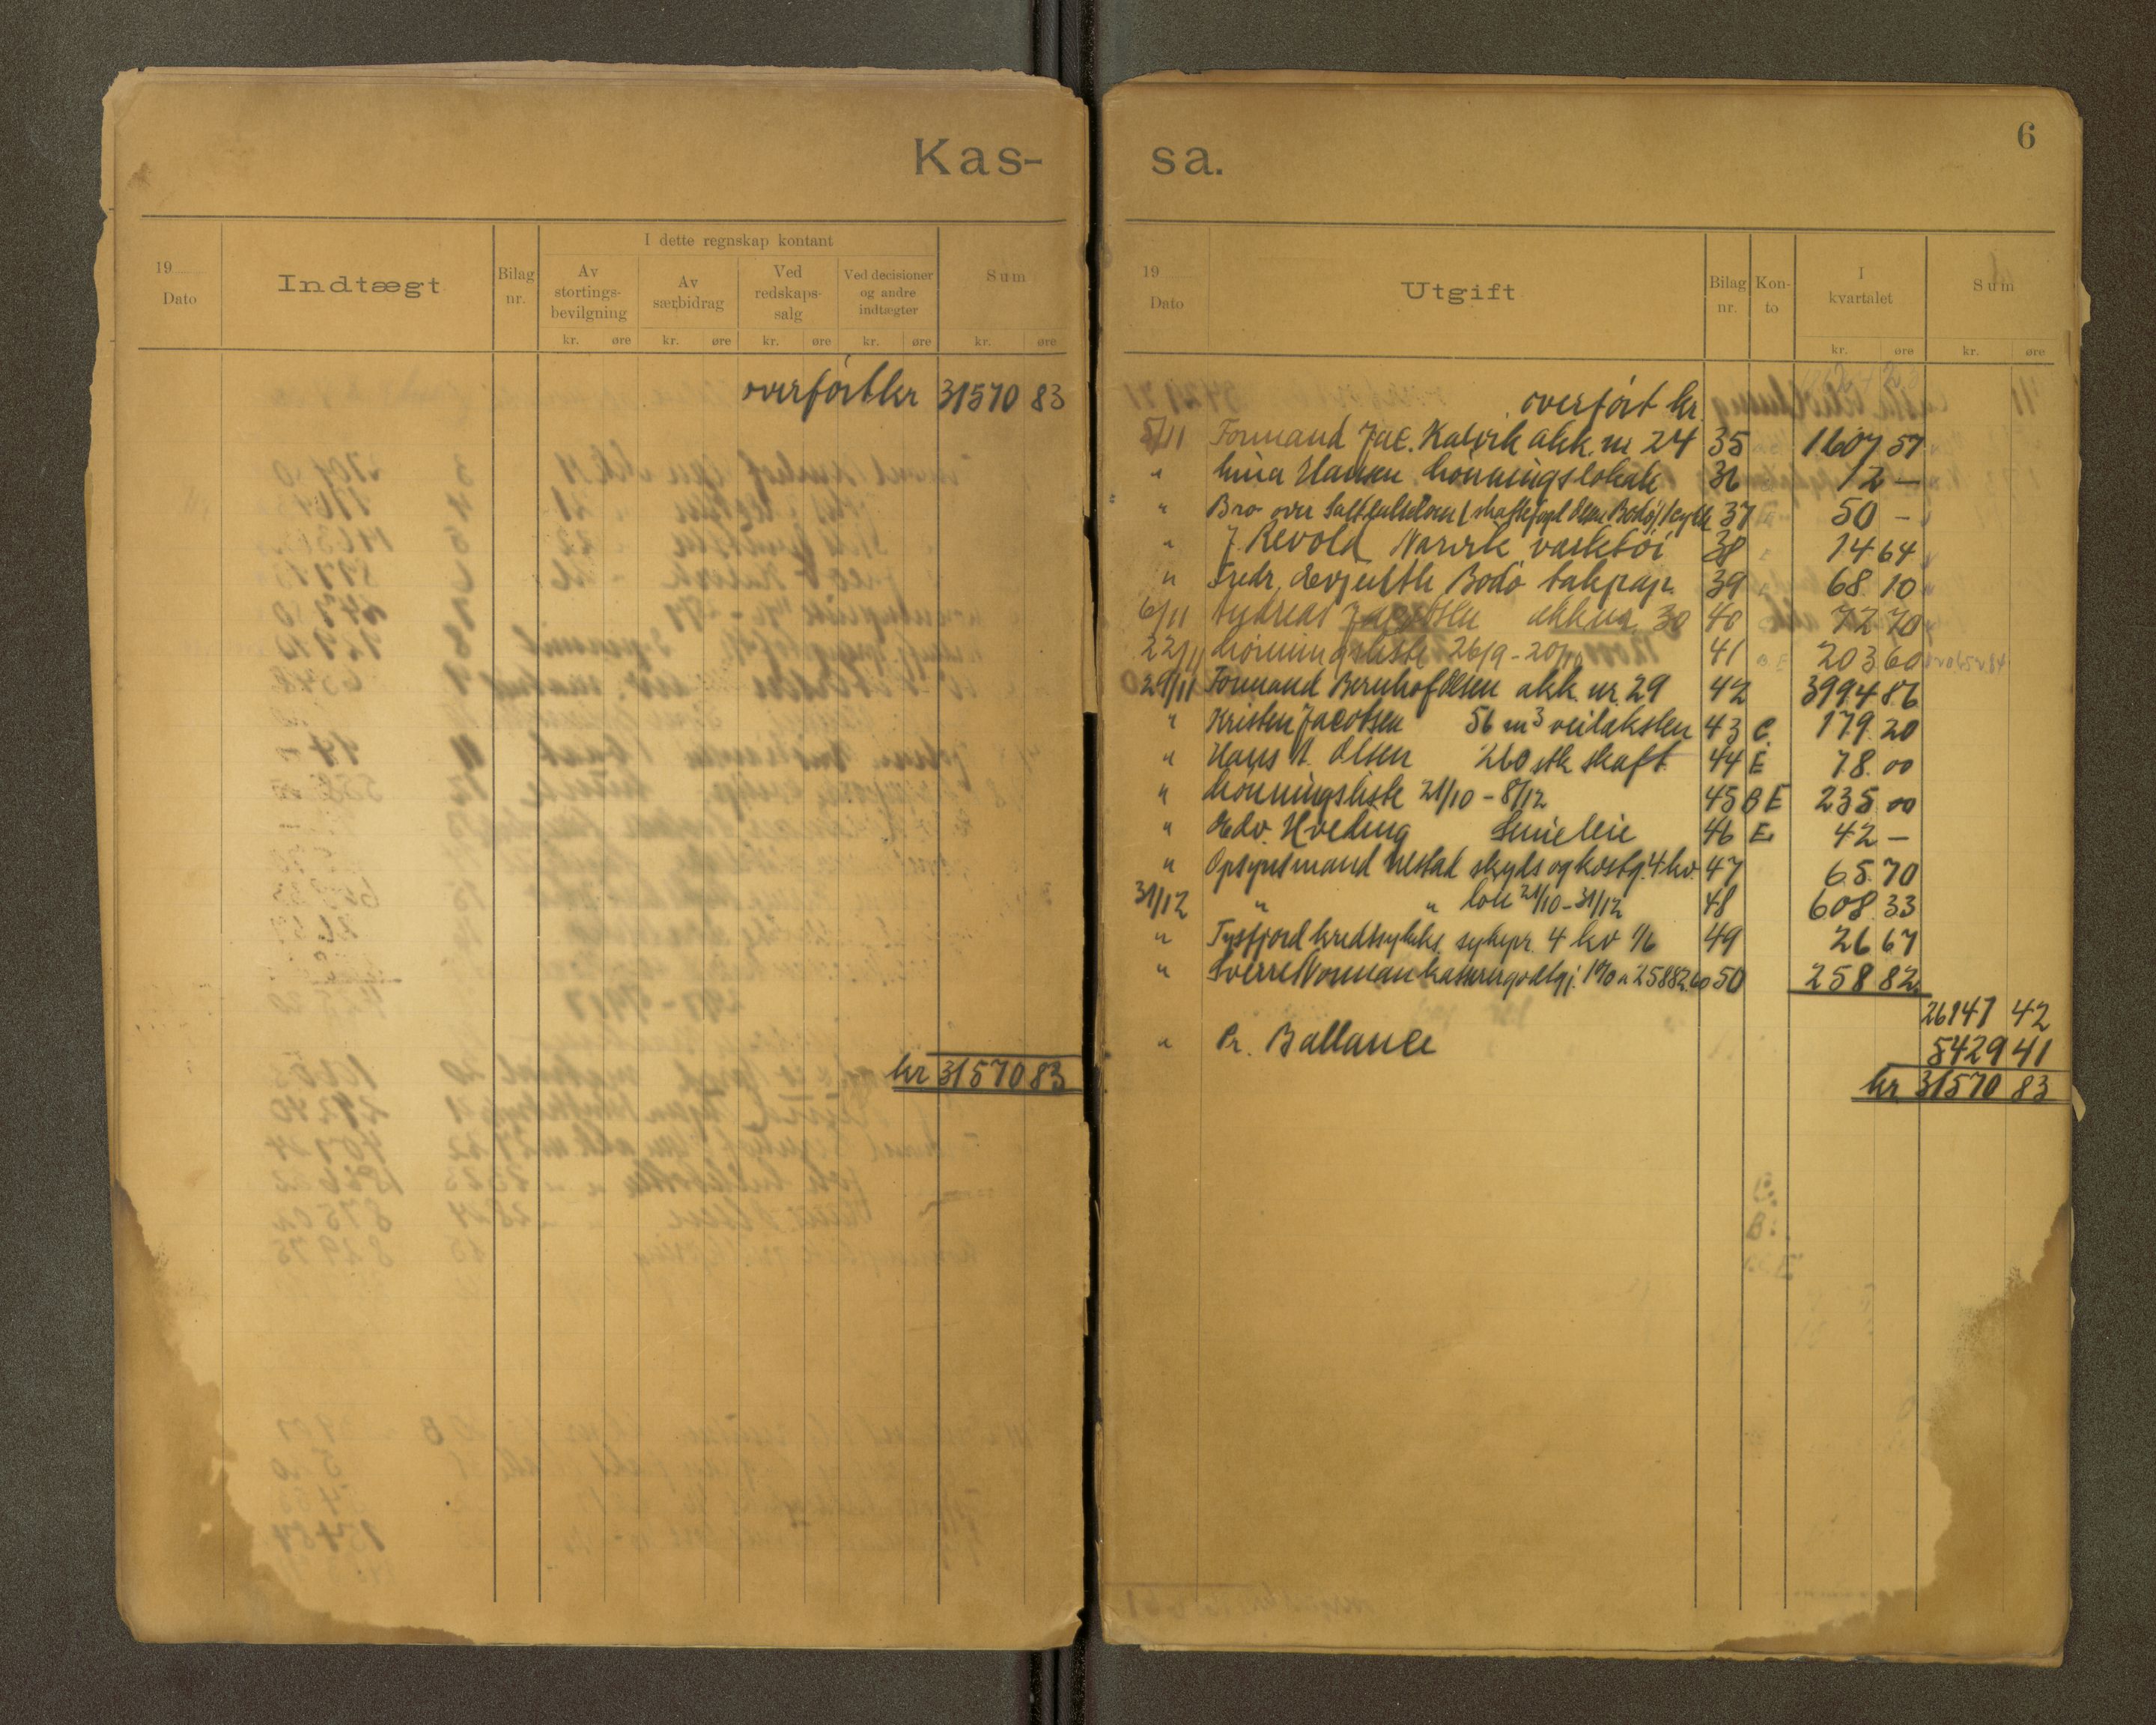 Kas-
I dette regnskap kontant
19
Dato
Indtægt
Bilag nr.
Av stortings-bevilgning
Av særbidrag
Ved redskaps-salg
Ved decisioner og andre indtægter
Sum
kr. øre kr. øre kr. øre kr. øre kr. øre
overført kr 31570 83
kr 31570 83
6
sa.
19
Dato
Utgift
Bilag nr.
Kon-to
I kvartalet
Sum
kr. øre kr. øre
overført kr.
5/11 Formand Jac. Kalvik akk. nr 24 35 1607 57
" Hansen lønningslokale 36 12 —
" Bro over 37 50 -
" J. Revold Narvik 38 14 64
" Fredr. Bodø takpap. 39 68 10
6/11 Andreas Jacobsen akk nr. 30 40 72 70
22/11 Lønningsliste 26/9 - 20/10 41 203 60
29/11 Formand Bernhof Olsen akk. nr. 29 42 3994 86
" Kristen Jacobsen 56 m³ 43 C 179 20
" Hans A. Olsen 260 stk skaft. 44 E 78 00
" Lønningsliste 21/10 - 8/12 45 B E 235 00
" Edv. Hveding Smieleie 46 E. 42 —
" Opsynsmand Nestad skyds og kostg. 4 kv. 47 65 70
31/12 " " løn 21/10 - 31/12 48 608 33
" Tysfjord kredssykeks. sykepr. 4 kv 1/6 49 26 67
" Sverre Norman kasserergodtgj. 1% a 25882.60 50 258 82
26141 42
" Pr. Ballance 5429 41
kr 31570 83